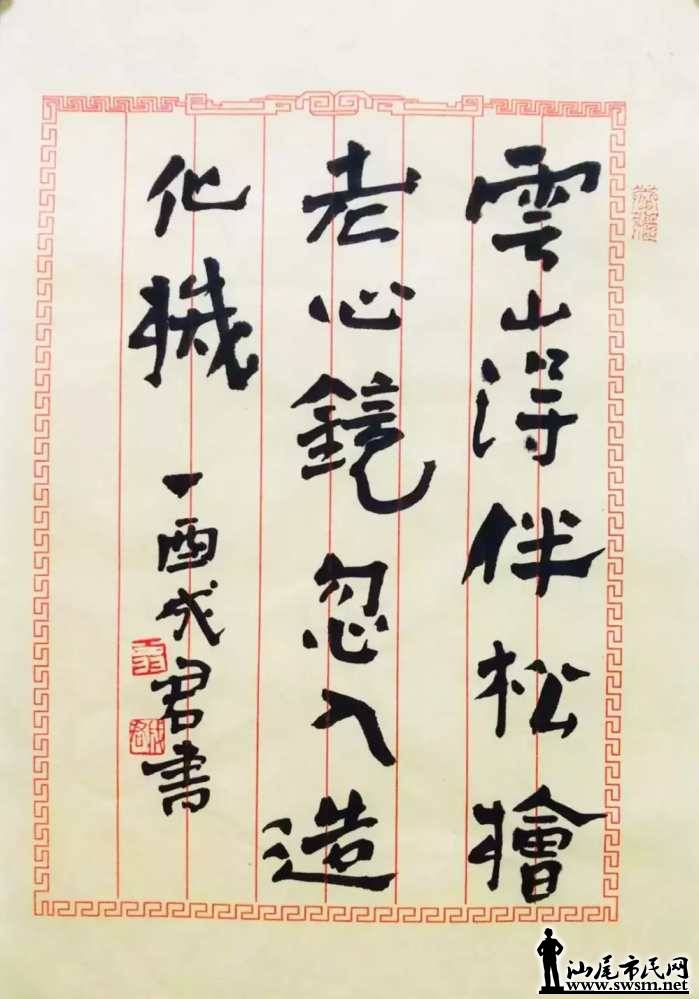 雲山得伴松檜
老心鏡忽入造
化機
丁酉成君書
汕尾市民网
www.swsm.net